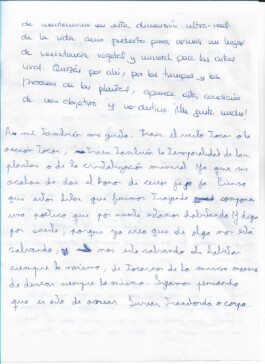 de mantenernos en esta dimensión ultra-real
de la vida como pretexto para armar un lugar
de resistencia vegetal y mineral para las artes
vivas. Quizás por ahí, por los tiempos y los
procesos de las plantas, aparece esta condición
de no objetivo y no destino ¡Me gusta mucho!
A mi también me gusta. Traer el verbo Tocar o la
acción Tocar, traer también la temporalidad de las
plantas o de la cristalización mineral. Ya que me
acaban de dar el honor de cerrar pienso
que estos hilos que fuimos trayendo compone
una poética que por suerte estamos habitando Y digo
por suerte, porque yo creo que de algo nos está
salvando, nos está salvando de habitar
siempre lo mismo, de tocarnos de la misma manera
de desear siempre lo mismo. Sigamos pensando
que es esto de novear. Trastorno o cuerpo.